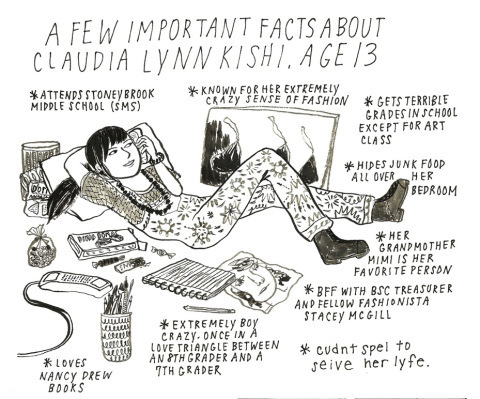 A FEW IMPORTANT FACTS ABOUT
CLAUDIA LYNN KISHI, AGE 13
*ATTENDS STONEYBROOK
MIDDLE SCHOOL (SMS)
*KNOWN FOR HER EXTREMELY
CRAZY SENSE OF FASHION
*GETS TERRIBLE
GRADES IN SCHOOL
EXCEPT FOR ART
CLASS
*HIDES JUNK FOOD
ALL OVER HER
BEDROOM
*HER
GRANDMOTHER
MIMI IS HER
FAVORITE PERSON
*BFF WITH BSC TREASURER
AND FELLOW FASHIONISTA
STACEY MCGILL
*EXTREMELY BOY
CRAZY. ONCE IN A
LOVE TRIANGLE BETWEEN
AN 8TH GRADER AND A
7TH GRADER
*cudnt spel to
seive her lyfe.
*LOVES
NANCY DREW
BOOKS